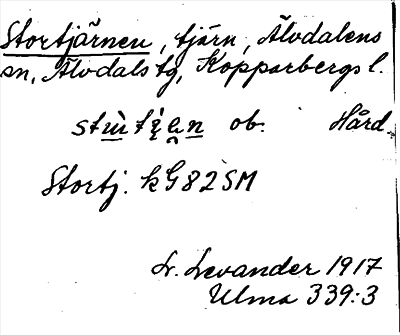 Stortjärnen, tjärn, Älvdalens
sn, Älvdals tg, Kopparbergs l.
ob. Hård.
Stortj. kG 82 SM
L. Levander 1917
Ulma 339:3